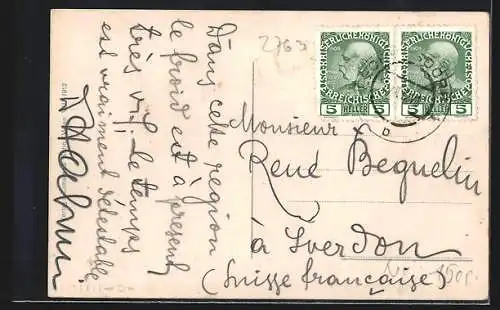 Dans cette region
le froid est à présent
très vif. Le temps
est vraiment détestable
2763
KAISERLICHE KÖNIGLICHE
ÖSTERREICHISCHE POST
5 HELLER 5
5 HELLER 5
Monsieur
René Bequelin
à Yverdon
(Suisse française)